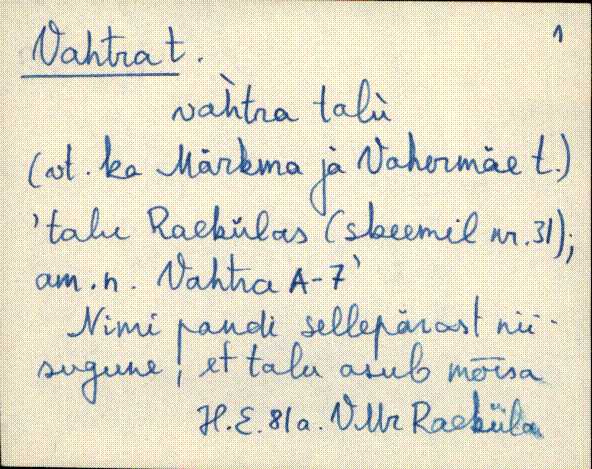 Vahtra t. 1
vahtra talu
(vt. ka Märkma jà Vahermäe t.)
'talu Raekülas (skeemil nr. 31);
am. n. Vahtra A-7'
Nimi pandi sellepärast nii-
sugune, et talu asub mõisa
H.E. 81a. VMr Raeküla